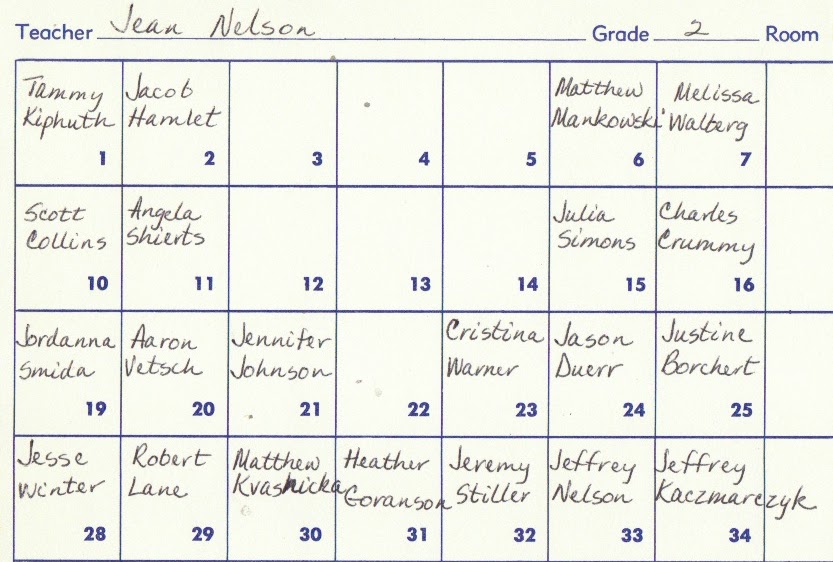 Teacher Jean Nelson Grade 2 Room
Tammy Jacob Matthew Melissa
Kiphuth Hamlet Mankowski Walberg
1 2 3 4 5 6 7
Scott Angela Julia Charles
Collins Shierts Simons Crummy
10 11 12 13 14 15 16
Jordanna Aaron Jennifer Cristina Jason Justine
Smida Vetsch Johnson Warner Duerr Borchert
19 20 21 22 23 24 25
Jesse Robert Matthew Heather Jeremy Jeffrey Jeffrey
Winter Lane Kvasnicka Goranson Stiller Nelson Kaczmarczyk
28 29 30 31 32 33 34